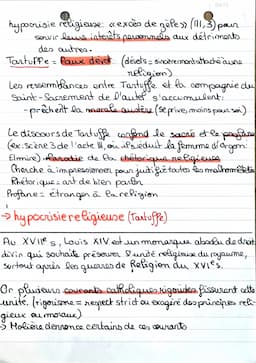 hypocrisie religieuse: « excès de zèle » (III, 3) pour
servir leurs intérêts personnels aux détriments
des autres.
Tartuffe = faux dévot (dévots = sincèrement attaché à une
religion)
Les ressemblances entre Tartuffe et la compagnie du
Saint-Sacrement de l'autel s'accumulent:
- prêchent la morale austère (se prive, moins pour soi)
Le discours de Tartuffe confond le sacré et le profane
(ex: scène 3 de l'acte III, où il séduit la femme d'Orgon:
Elmire) parodie de la rhétorique religieuse
Cherche à impressionner pour justifier toutes les malhonnêtetés
Rhétorique: art de bien parler
Profane: étranger à la religion
→ hypocrisie religieuse (Tartuffe)
Au XVIIe s, Louis XIV est un monarque absolu de droit
divin qui souhaite préserver l'unité religieuse du royaume,
surtout après les guerres de Religion du XVIe s.
Or plusieurs courants catholiques rigoristes fissurent cette
unité. (rigorisme = respect strict ou exagéré des principes reli-
gieux ou moraux)
→ Molière dénonce certains de ces courants